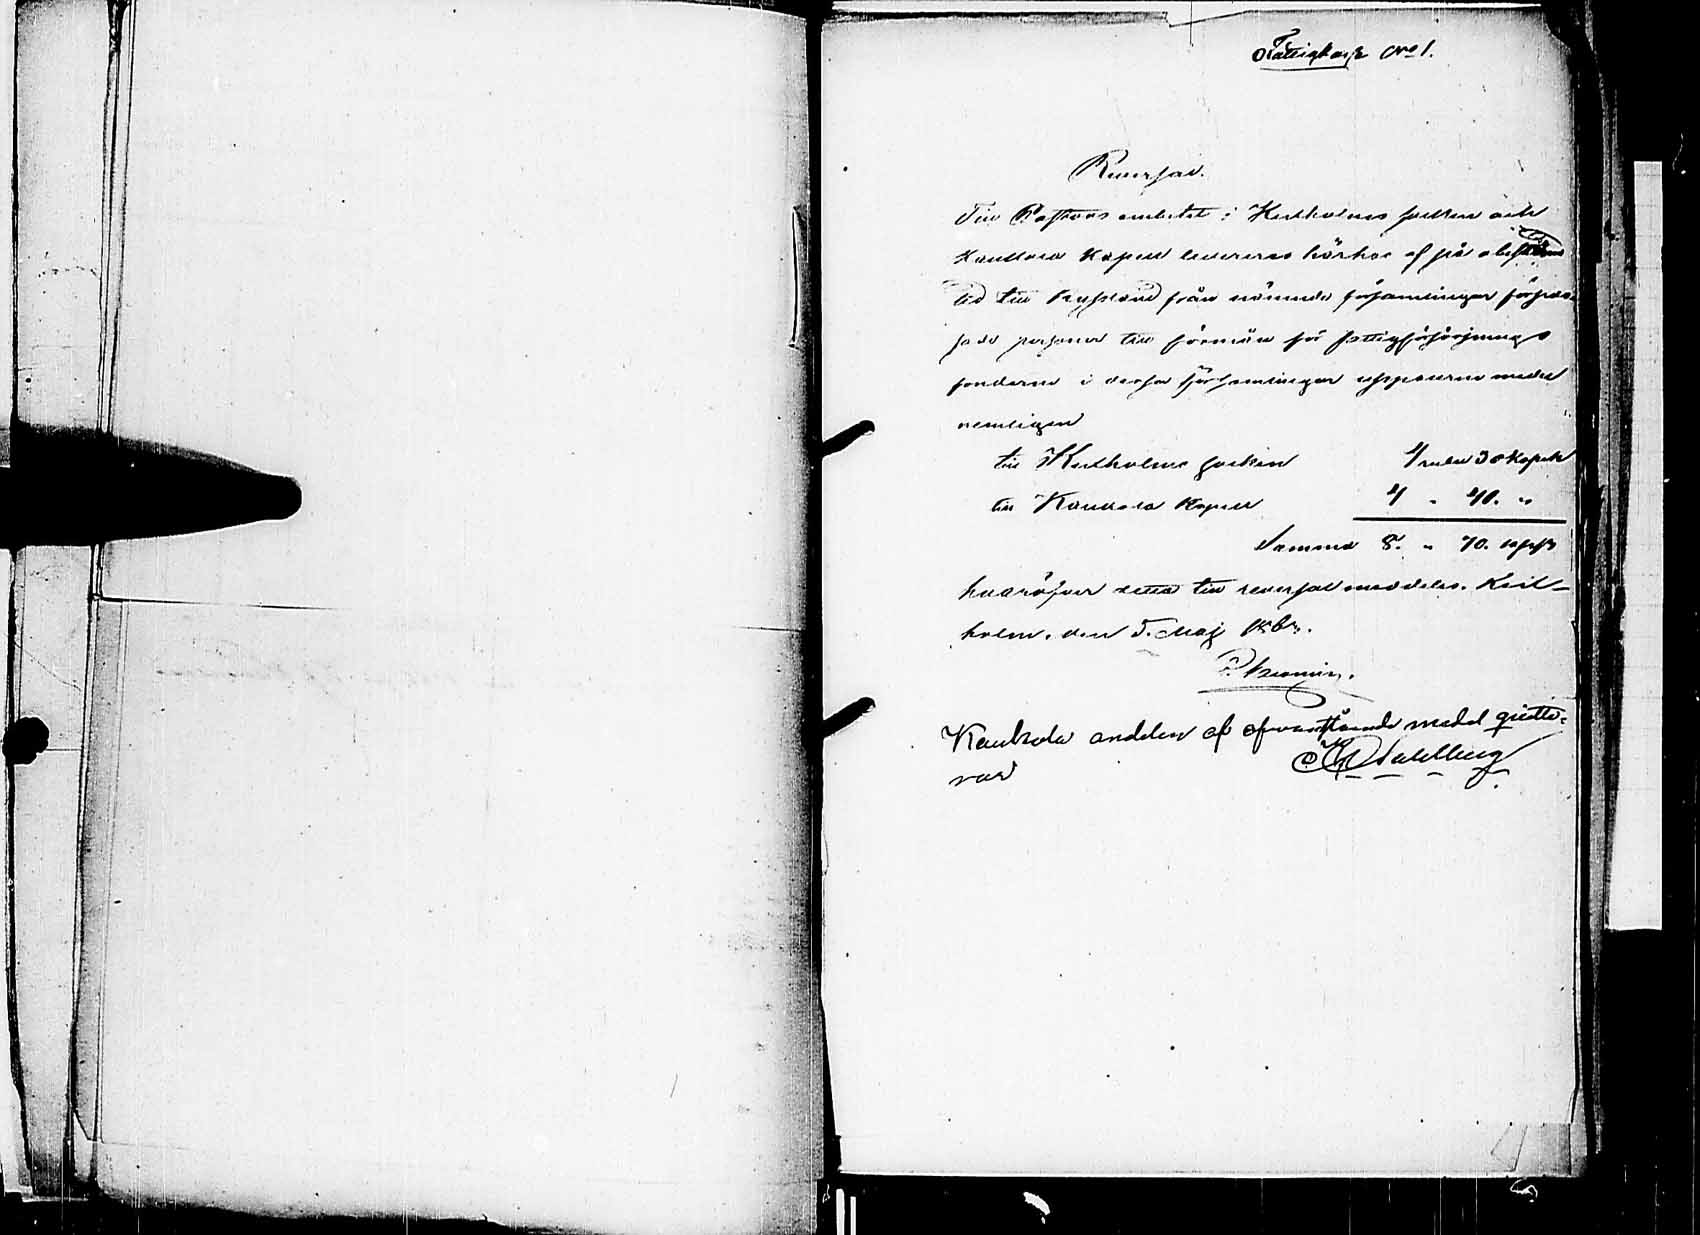 Fattigkass No 1.
Reversal.
Till Pastors embetet i Kexholms socken och
Kaukola Kapell levereras härhos af på obestämd
tid till Ryssland från nämnde församlingar förpas-
sade personer till förmån för fattigförsörjnings
fonderne i dessa församlingar uppburne medel
nemligen
till Kexholms socken 4 rubel 30 Kopek
till Kaukola Kapell 4 " 40. "
Summa 8. " 70. kop
hvaröfver detta till reversal meddelas. Kex-
holm, den 5. Maj
Kaukola andelen af ofvanstående medel qvitte-
ras
Sahlberg